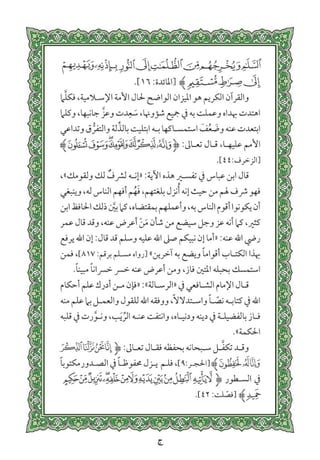 ٱلسَّلَٰمِ وَيُخْرِجُهُم مِّنَ ٱلظُّلُمَٰتِ إِلَى ٱلنُّورِ بِإِذْنِهِۦ وَيَهْدِيهِمْ
إِلَىٰ صِرَٰطٍ مُّسْتَقِيمٍ ﴾ [المائدة: ١٦].
والقرآن الكريم هو الميزان الواضح لحال الأمة الإسلامية، فكلَّما
اهتدت بهداه وعملت به في جميع شؤونها، سعِدَت وعزَّ جانبها، وكلما
ابتعدت عنه وضعُفَ استمساكها به ابتليت بالذلَّة والتفرُّق وتداعي
الأمم عليها، قال تعالى: ﴿ وَإِنَّهُۥ لَذِكْرٌ لَّكَ وَلِقَوْمِكَ وَسَوْفَ تُسْـَٔلُونَ ﴾
[الزخرف:٤٤].
قال ابن عباس في تفسير هذه الآية: «إنه لشرفٌ لك ولقومك»،
فهو شرف لهم من حيث إنه أُنزل بلغتهم، فهُم أفهم الناس له، وينبغي
أن يكونوا أقوم الناس به، وأعملهم بمقتضاه، كما بيَّن ذلك الحافظ ابن
كثير، كما أنه عز وجل سيضع من شأن مَنْ أعرض عنه، وقد قال عمر
رضي الله عنه: «أما إن نبيكم صلى الله عليه وسلم قد قال: إن الله يرفع
بهذا الكتاب أقواماً ويضع به آخرين» [رواه مسلم برقم: ٨١٧]، فمن
استمسك بحبله المتين فاز، ومن أعرض عنه خسر خسراناً مبيناً.
قال الإمام الشافعي في «الرسالة»: «فإن من أدرك علم أحكام
الله في كتابه نصّاً واستدلالاً، ووفقه الله للقول والعمل بما علم منه
فاز بالفضيلة في دينه ودنياه، وانتفت عنه الرِّيَب، ونوَّرت في قلبه
الحكمة».
وقد تكفَّل سبحانه بحفظه فقال تعالى: ﴿ إِنَّا نَحْنُ نَزَّلْنَا ٱلذِّكْرَ
وَإِنَّا لَهُۥ لَحَٰفِظُونَ ﴾ [الحجر:٩]، فلم يزل محفوظاً في الصدور مكتوباً
في السطور ﴿ لَّا يَأْتِيهِ ٱلْبَٰطِلُ مِنۢ بَيْنِ يَدَيْهِ وَلَا مِنْ خَلْفِهِۦ تَنزِيلٌ مِّنْ حَكِيمٍ
حَمِيدٍ ﴾ [فصّلت: ٤٢].
ج